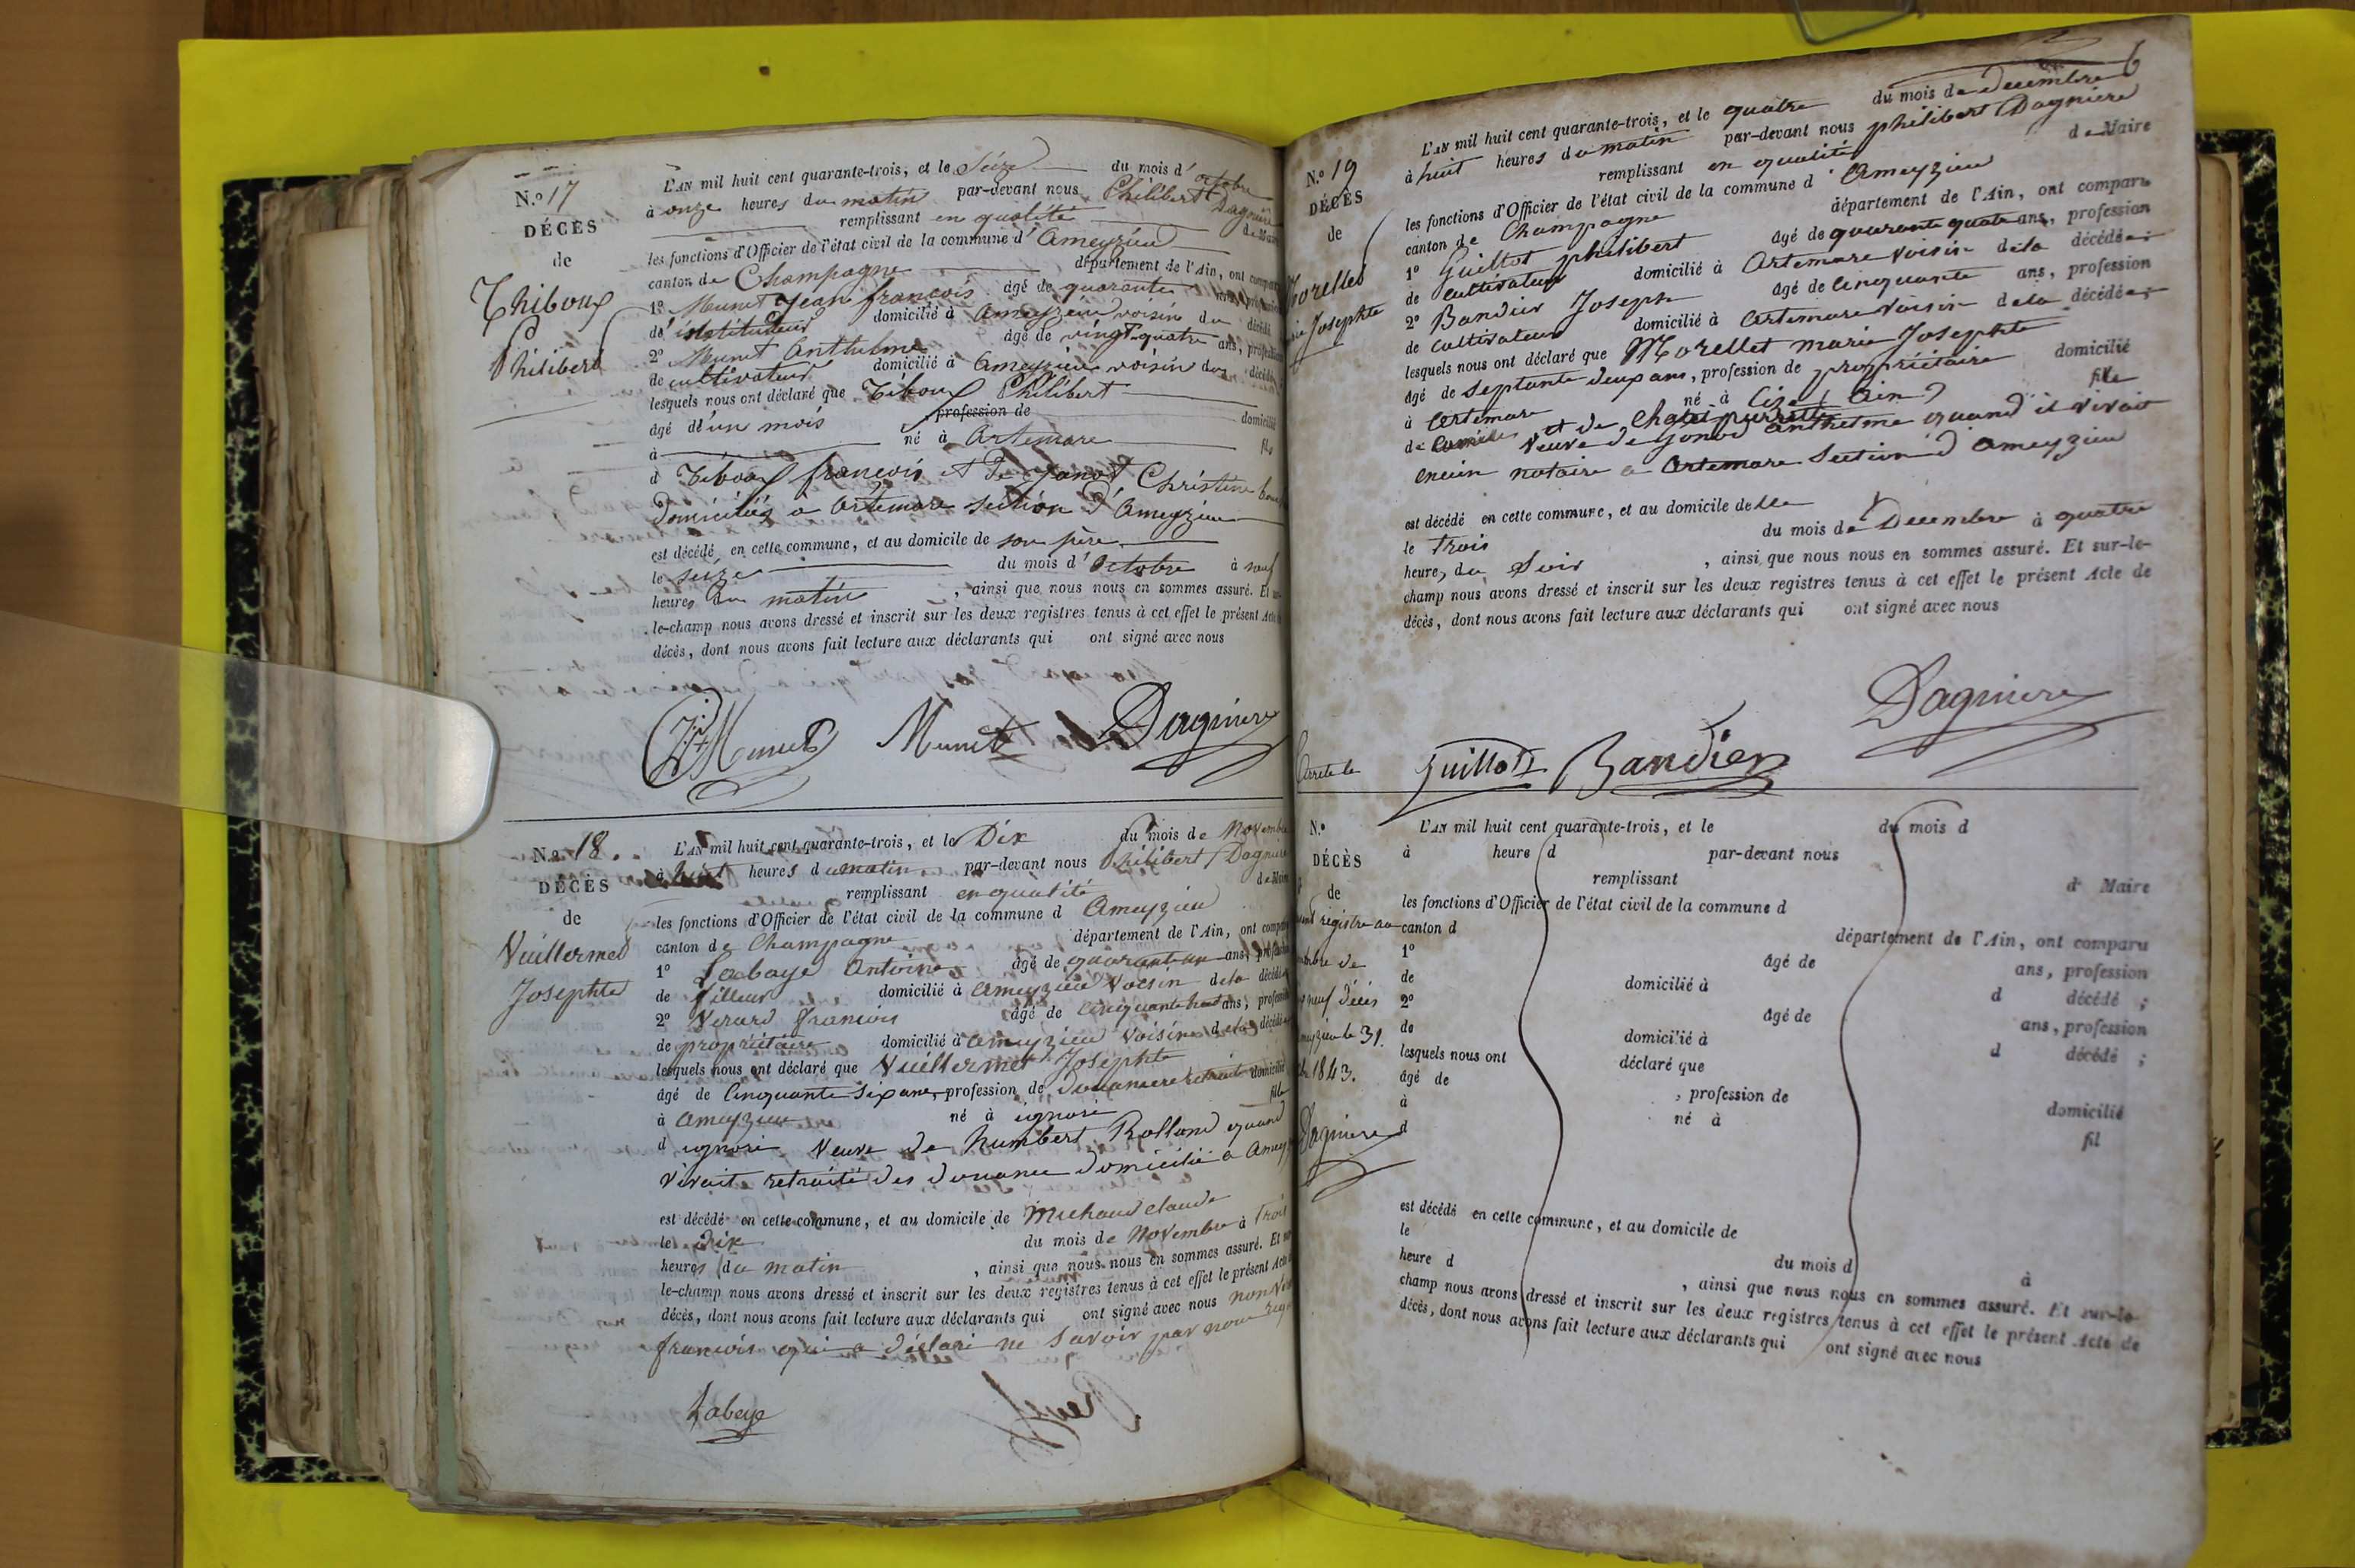 N.º 17
DÉCÈS
de
Thiboux
Philibert
L'AN mil huit cent quarante-trois, et le Seize du mois d'octobre
à onze heures du matin par-devant nous Philibert Dagniere
remplissant en qualité de Maire
les fonctions d'Officier de l'état civil de la commune d'Ameyzieu
canton de Champagne département de l'Ain, ont comparu
1º Munet Jean francois âgé de quarante
de instituteur domicilié à Ameyzieu voisin du décédé
2º Munet Anthelme âgé de vingt-quatre ans, profession
de cultivateur domicilié à Ameyzieu voisin du décédé
lesquels nous ont déclaré que Tiboux Philibert
âgé d'un mois profession de domicilié
à né à Artemare fils
d Tiboux francois et de Janot Christine
Domiciliés a Artemare section d'Ameyzieu
est décédé en cette commune, et au domicile de son père
le seize du mois d'Octobre à neuf
heures du matin, ainsi que nous nous en sommes assuré. Et sur-
le-champ nous avons dressé et inscrit sur les deux registres tenus à cet effet le présent Acte de
décès, dont nous avons fait lecture aux déclarants qui ont signé avec nous
Munet Munet Dagniere
N.º 18.
DÉCÈS
de
Vuillermet
Josephte
L'AN mil huit cent quarante-trois, et le Dix du mois de Novembre
à huit heures du matin par-devant nous Philibert Dagniere
remplissant en qualité de Maire
les fonctions d'Officier de l'état civil de la commune d Ameyzieu
canton de Champagne département de l'Ain, ont comparu
1º Labaye Antoine âgé de quarante un ans, profession
de domicilié à Ameyzieu Voisin de la décédée
2º Verard francois âgé de Cinquante huit ans, profession
de propriétaire domicilié à Ameyzieu Voisin de la décédée
lesquels nous ont déclaré que Vuillermet Josephte
âgé de Cinquante Six ans, profession de Douaniere retraité domicilié
à Ameyzieu né à ignoré fille
d ignoré Veuve de humbert Rolland quand
Vivait retraité des douanes domicilié a
est décédé en cette commune, et au domicile de Michaud claude
le dix du mois de Novembre à trois
heures du matin, ainsi que nous nous en sommes assuré. Et sur-
le-champ nous avons dressé et inscrit sur les deux registres tenus à cet effet le présent Acte de
décès, dont nous avons fait lecture aux déclarants qui ont signé avec nous non
francois qui a déclaré ne savoir par nous
Labaye
6
N.º 19
DÉCÈS
de
Morellet
Josephte
L'AN mil huit cent quarante-trois, et le quatre du mois de Decembre
à huit heures du matin par-devant nous philibert Dagniere
remplissant en qualité de Maire
les fonctions d'Officier de l'état civil de la commune d'Ameyzieu
canton de Champagne département de l'Ain, ont comparu
1º Guillot philibert âgé de quarante quatre ans, profession
de cultivateur domicilié à Artemare Voisin de la décédée;
2º Bandier Joseph âgé de Cinquante ans, profession
de cultivateur domicilié à Artemare Voisin de la décédée;
lesquels nous ont déclaré que Morellet marie Josephte
âgé de Septante deux ans, profession de propriétaire domicilié
à Artemare né à (Ain) fille
de et de Veuve de Gonod Anthelme quand il Vivait
encien notaire a Artemare Section d'Ameyzieu
est décédé en cette commune, et au domicile de elle
le Trois du mois de Decembre à quatre
heures du Soir, ainsi que nous nous en sommes assuré. Et sur-le-
champ nous avons dressé et inscrit sur les deux registres tenus à cet effet le présent Acte de
décès, dont nous avons fait lecture aux déclarants qui ont signé avec nous
Dagniere
Guillot Bandier
Arrete le
registre au
neuf décès
le 31.
1843.
Dagniere
N.º
DÉCÈS
de
L'AN mil huit cent quarante-trois, et le du mois d
à heure d par-devant nous
remplissant d Maire
les fonctions d'Officier de l'état civil de la commune d
canton d département de l'Ain, ont comparu
1º âgé de ans, profession
de domicilié à d décédé ;
2º âgé de ans, profession
de domicilié à d décédé ;
lesquels nous ont déclaré que
âgé de , profession de domicilié
à né à fil
d
est décédé en cette commune, et au domicile de
le du mois d à
heure d , ainsi que nous nous en sommes assuré. Et sur-le-
champ nous avons dressé et inscrit sur les deux registres tenus à cet effet le présent Acte de
décès, dont nous avons fait lecture aux déclarants qui ont signé avec nous